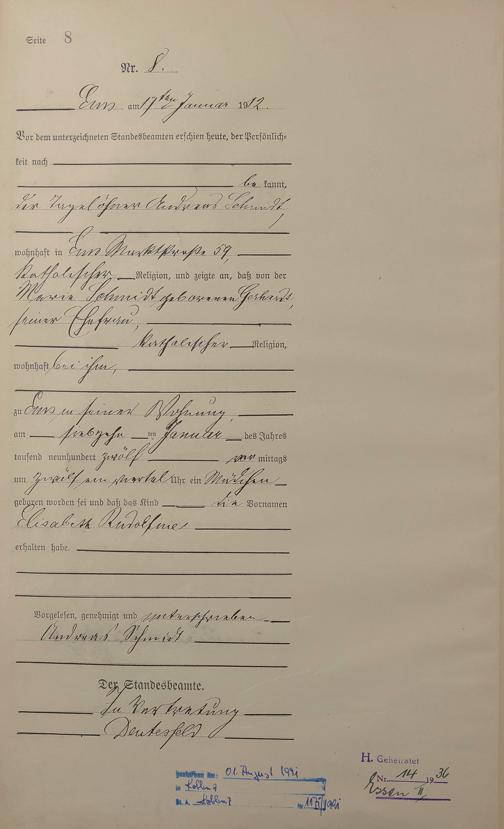 Seite 8
Nr. 8.
Ems am 17ten Januar 1912.
Vor dem unterzeichneten Standesbeamten erschien heute, der Persönlich-
keit nach
be kannt,
der Tagelöhner Andreas Schmidt,
wohnhaft in Ems Marktstraße 59,
katholischer Religion, und zeigte an, daß von der
Marie Schmidt geborenen Gerhardt,
seiner Ehefrau,
katholischer Religion,
wohnhaft bei ihm,
zu Ems in seiner Wohnung
am siebzehn ten Januar des Jahres
tausend neunhundert zwölf vor mittags
um zwölf ein viertel Uhr ein Mädchen
geboren worden sei und daß das Kind die Vornamen
Elisabeth Rudolfine
erhalten habe.
Vorgelesen, genehmigt und unterschrieben
Andreas Schmidt
Der Standesbeamte.
In Vertretung
01. August 1991
in Koblenz
St. A. Koblenz
H. Geheiratet
Nr. 14 1936
Essen II